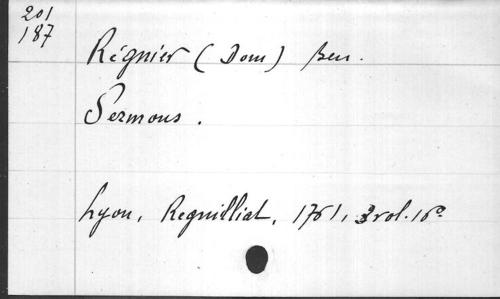 201
187
Régnier (Dom) Ben.
Sermons.
Lyon, Regnilliat, 1761, 3 vol. 16º